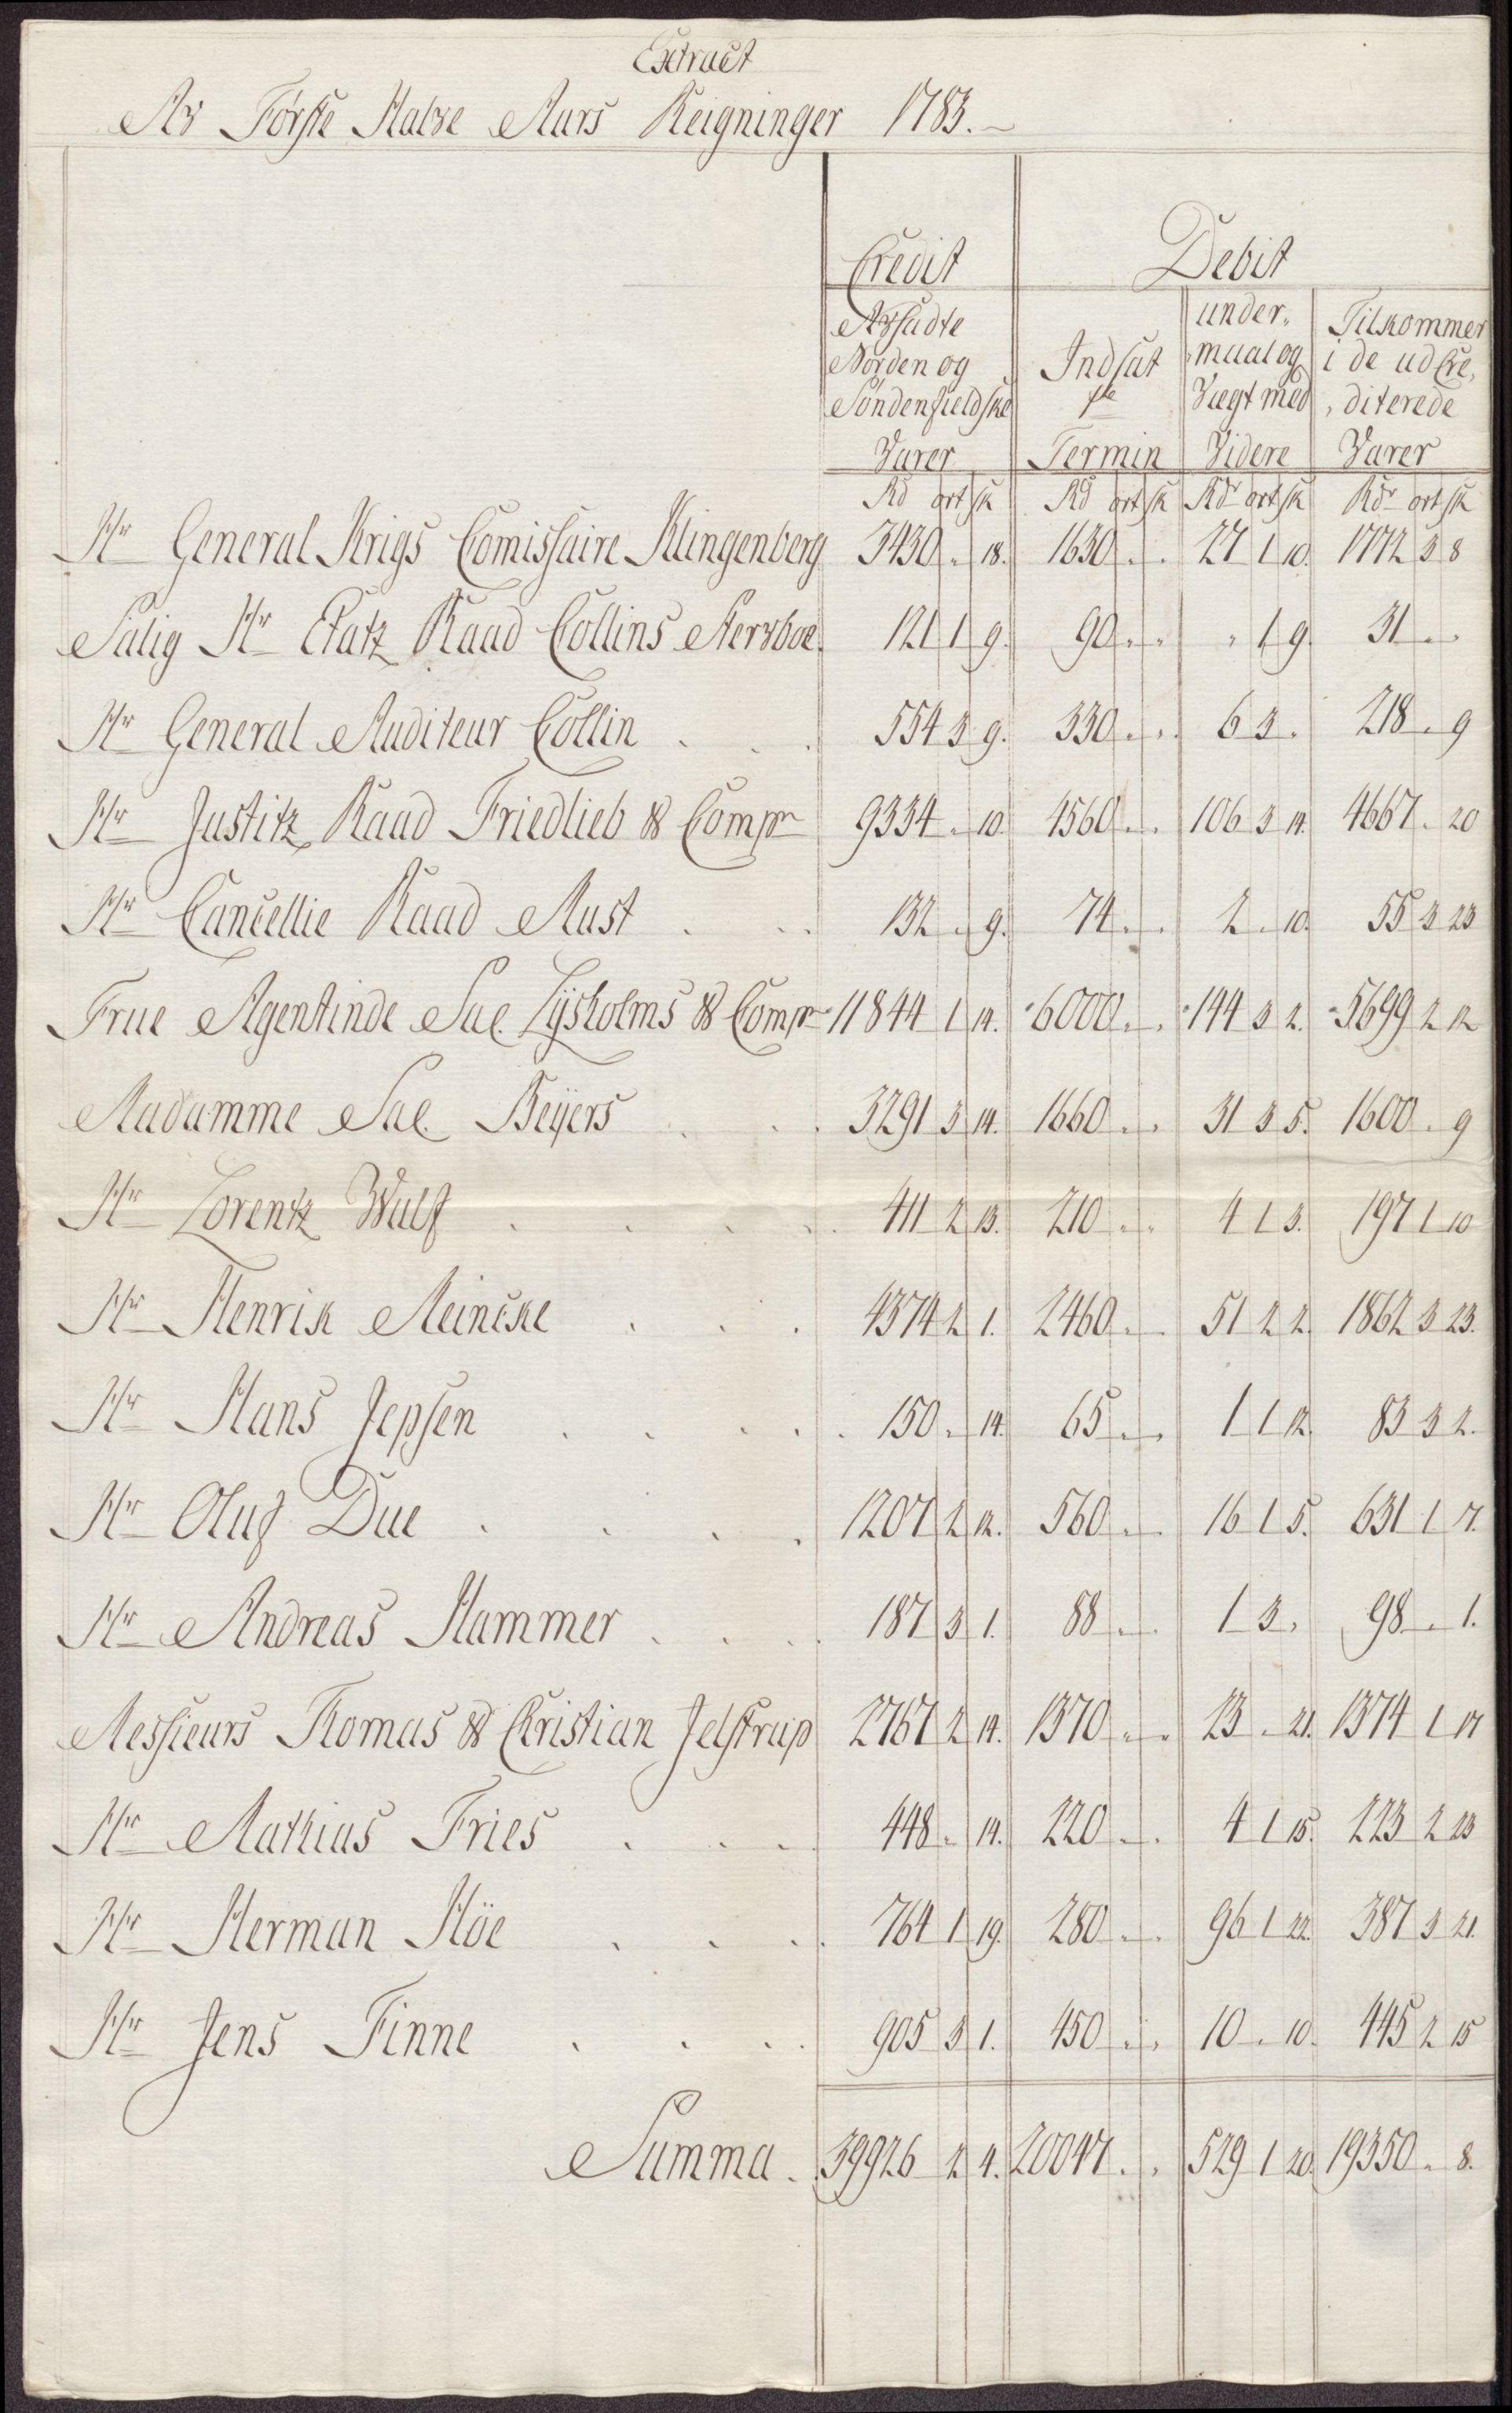 Extract
Av Første Halve Aars Reigninger 1783.
Credit Debit
Avsadte Norden og Søndenfieldske Varer
Indsat 1ste Termin
under„ „maal og Vægt med Videre
Tilkommer i de udCre„ „diterede Varer
Rd ort sk Rd ort sk Rdr ort sk Rdr ort sk
Hr General Krigs Comissaire Klingenberg 3430 „ 18. 1630 „ „ 27 1 10. 1772 3 8
Salig Hr Etatz Raad Collins Stervboe. 121 1 9. 90 „ „ „ 1 9. 31 „ „
Hr General Auditeur Collin . . . 554 3 9. 330 „ „ 6 3 „ 218 „ 9
Hr Justitz Raad Friedlieb & Compn 9334 „ 10. 4560 „ „ 106 3 14. 4667 „ 20
Hr Cancellie Raad Aust . . . 132 „ 9. 74 „ „ 2 „ 10. 55 3 23
Frue Agentinde Sal. Lysholms & Compn 11844 1 14. 6000 „ „ 144 3 2. 5699 2 12
Madamme Sal. Beÿers . . . 3291 3 14. 1660 „ „ 31 3 5. 1600 „ 9
Hr Lorentz Wulf . . . . 411 2 13. 210 „ „ 4 1 3. 197 1 10
Hr Henrik Meincke . . . 4374 2 1. 2460 „ „ 51 2 2. 1862 3 23.
Hr Hans Jepsen . . . . . 150 „ 14. 65 „ „ 1 1 12. 83 3 2.
Hr Oluf Due . . . . 1207 2 12. 560 „ „ 16 1 5. 631 1 7.
Hr Andreas Hammer . . . . 187 3 1. 88 „ „ 1 3 „ 98 „ 1.
Messieurs Thomas & Christian Jelstrup 2767 2 14. 1370 „ „ 23 „ 21. 1374 1 17
Hr Mathias Fries . . . 448 „ 14. 220 „ „ 4 1 15. 223 2 23
Hr Herman Höe . . . . 764 1 19. 280 „ „ 96 1 22. 387 3 21.
Hr Jens Finne . . . . 905 3 1. 450 „ „ 10 „ 10. 445 2 15
Summa . 39926 2 4. 20047 „ „ 529 1 20. 19350 „ 8.